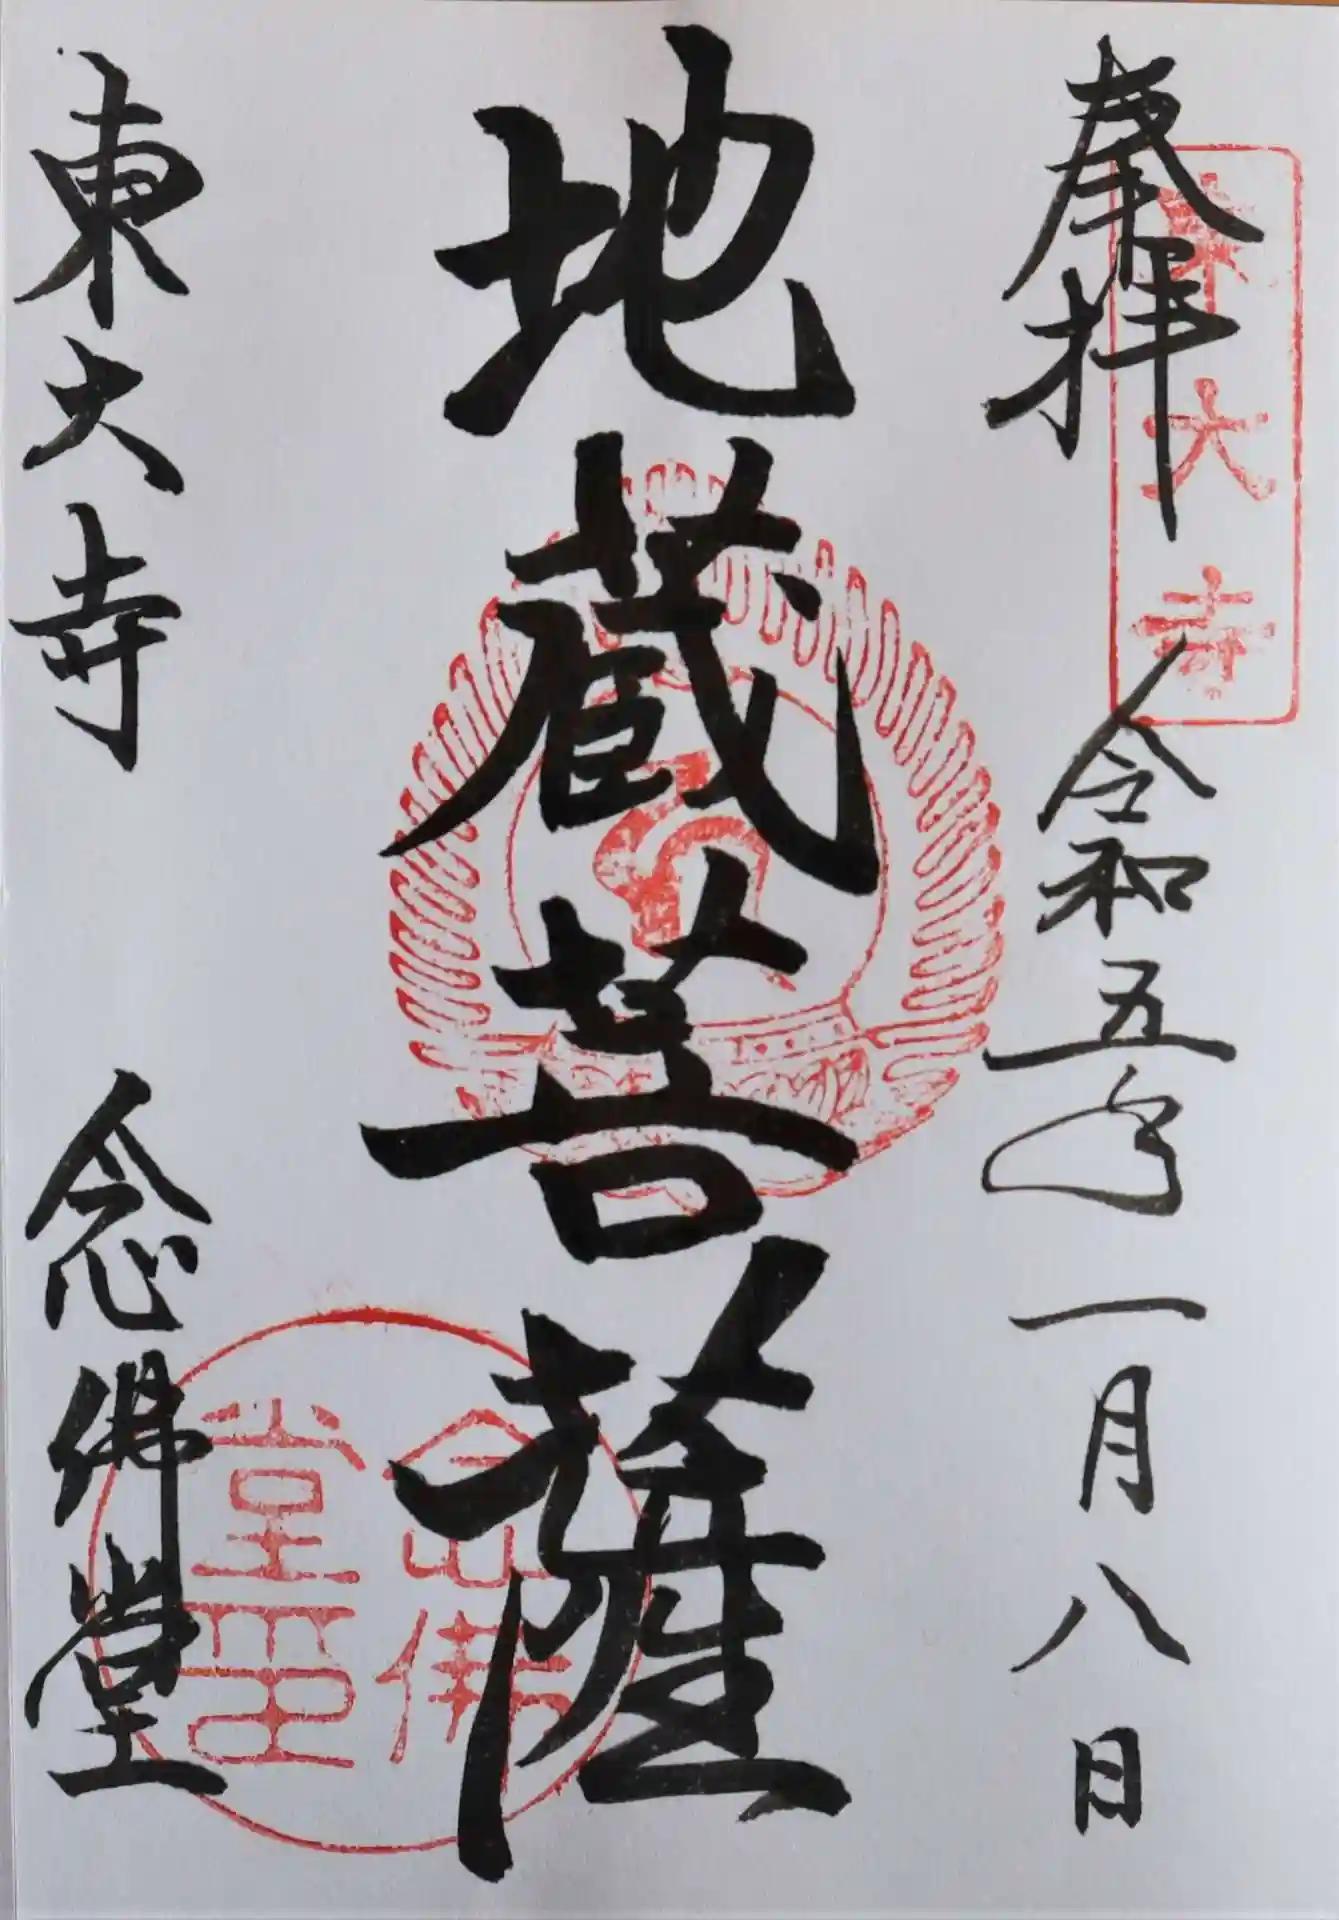 奉拝
東大寺
令和五年一月八日
地蔵菩薩
東大寺
念佛堂
念佛堂印